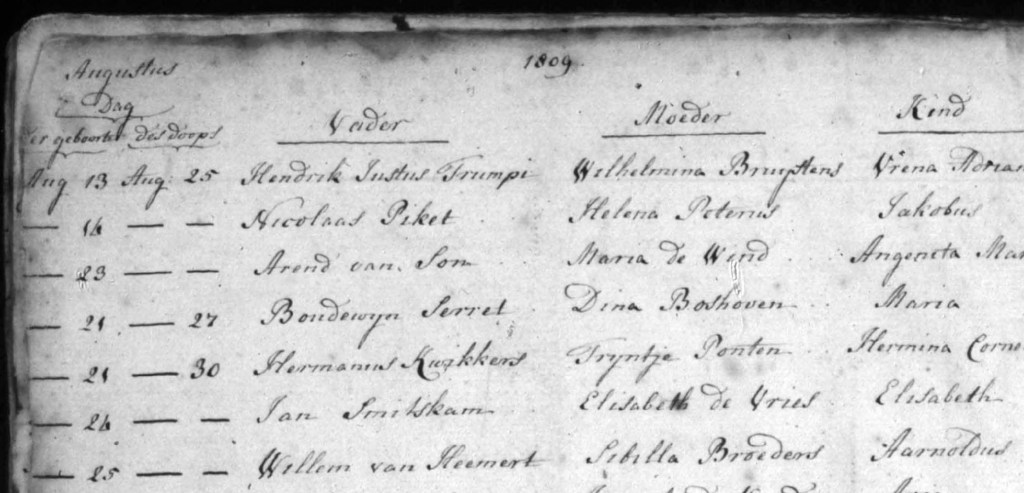 1809.
Augustus
Dag
der geboorte des doops Vader Moeder Kind
Aug 13 Aug: 25 Hendrik Justus Trumpi Wilhelmina Bruystens Vrena Adrian
— 14 — — Nicolaas Piket Helena Peterus Jakobus
— 23 — — Arend van Son Maria de Wind Angeneta Mar
— 21 — 27 Boudewyn Serret Dina Boshoven Maria
— 21 — 30 Hermanus Kwikkers Tryntje Ponten Hermina Corne
— 24 — — Jan Smitskam Elisabeth de Vries Elisabeth
— 25 — — Willem van Heemert Sibilla Broeders Aarnoldus